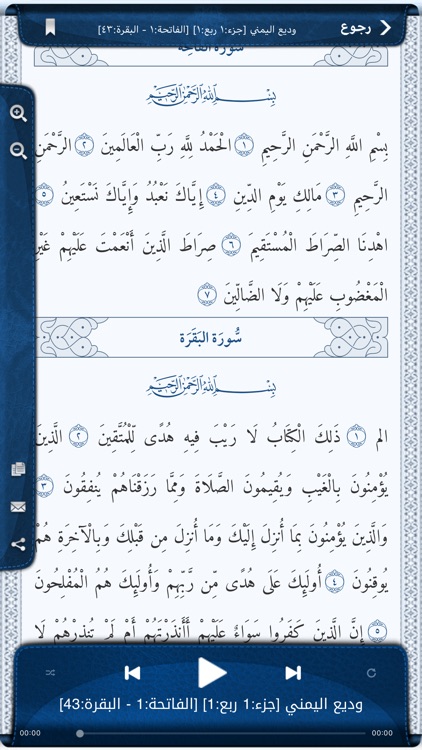 رجوع
وديع اليمني [جزء:١ ربع:١] [الفاتحة:١ - البقرة:٤٣]
سُورَة الفَاتِحَة
بِسْمِ اللَّهِ الرَّحْمَنِ الرَّحِيمِ
بِسْمِ اللَّهِ الرَّحْمَنِ الرَّحِيمِ ﴿١﴾ الْحَمْدُ لِلَّهِ رَبِّ الْعَالَمِينَ ﴿٢﴾ الرَّحْمَنِ
الرَّحِيمِ ﴿٣﴾ مَالِكِ يَوْمِ الدِّينِ ﴿٤﴾ إِيَّاكَ نَعْبُدُ وَإِيَّاكَ نَسْتَعِينُ ﴿٥﴾
اهْدِنَا الصِّرَاطَ الْمُسْتَقِيمَ ﴿٦﴾ صِرَاطَ الَّذِينَ أَنْعَمْتَ عَلَيْهِمْ غَيْرِ
الْمَغْضُوبِ عَلَيْهِمْ وَلَا الضَّالِّينَ ﴿٧﴾
سُورَة البَقَرَة
بِسْمِ اللَّهِ الرَّحْمَنِ الرَّحِيمِ
الم ﴿١﴾ ذَلِكَ الْكِتَابُ لَا رَيْبَ فِيهِ هُدًى لِّلْمُتَّقِينَ ﴿٢﴾ الَّذِينَ
يُؤْمِنُونَ بِالْغَيْبِ وَيُقِيمُونَ الصَّلَاةَ وَمِمَّا رَزَقْنَاهُمْ يُنفِقُونَ ﴿٣﴾
وَالَّذِينَ يُؤْمِنُونَ بِمَا أُنزِلَ إِلَيْكَ وَمَا أُنزِلَ مِن قَبْلِكَ وَبِالْآخِرَةِ هُمْ
يُوقِنُونَ ﴿٤﴾ أُولَئِكَ عَلَى هُدًى مِّن رَّبِّهِمْ وَأُولَئِكَ هُمُ الْمُفْلِحُونَ
﴿٥﴾ إِنَّ الَّذِينَ كَفَرُوا سَوَاءٌ عَلَيْهِمْ أَأَنذَرْتَهُمْ أَمْ لَمْ تُنذِرْهُمْ لَا
وديع اليمني [جزء:1 ربع:1] [الفاتحة:1 - البقرة:43]
00:00
00:00